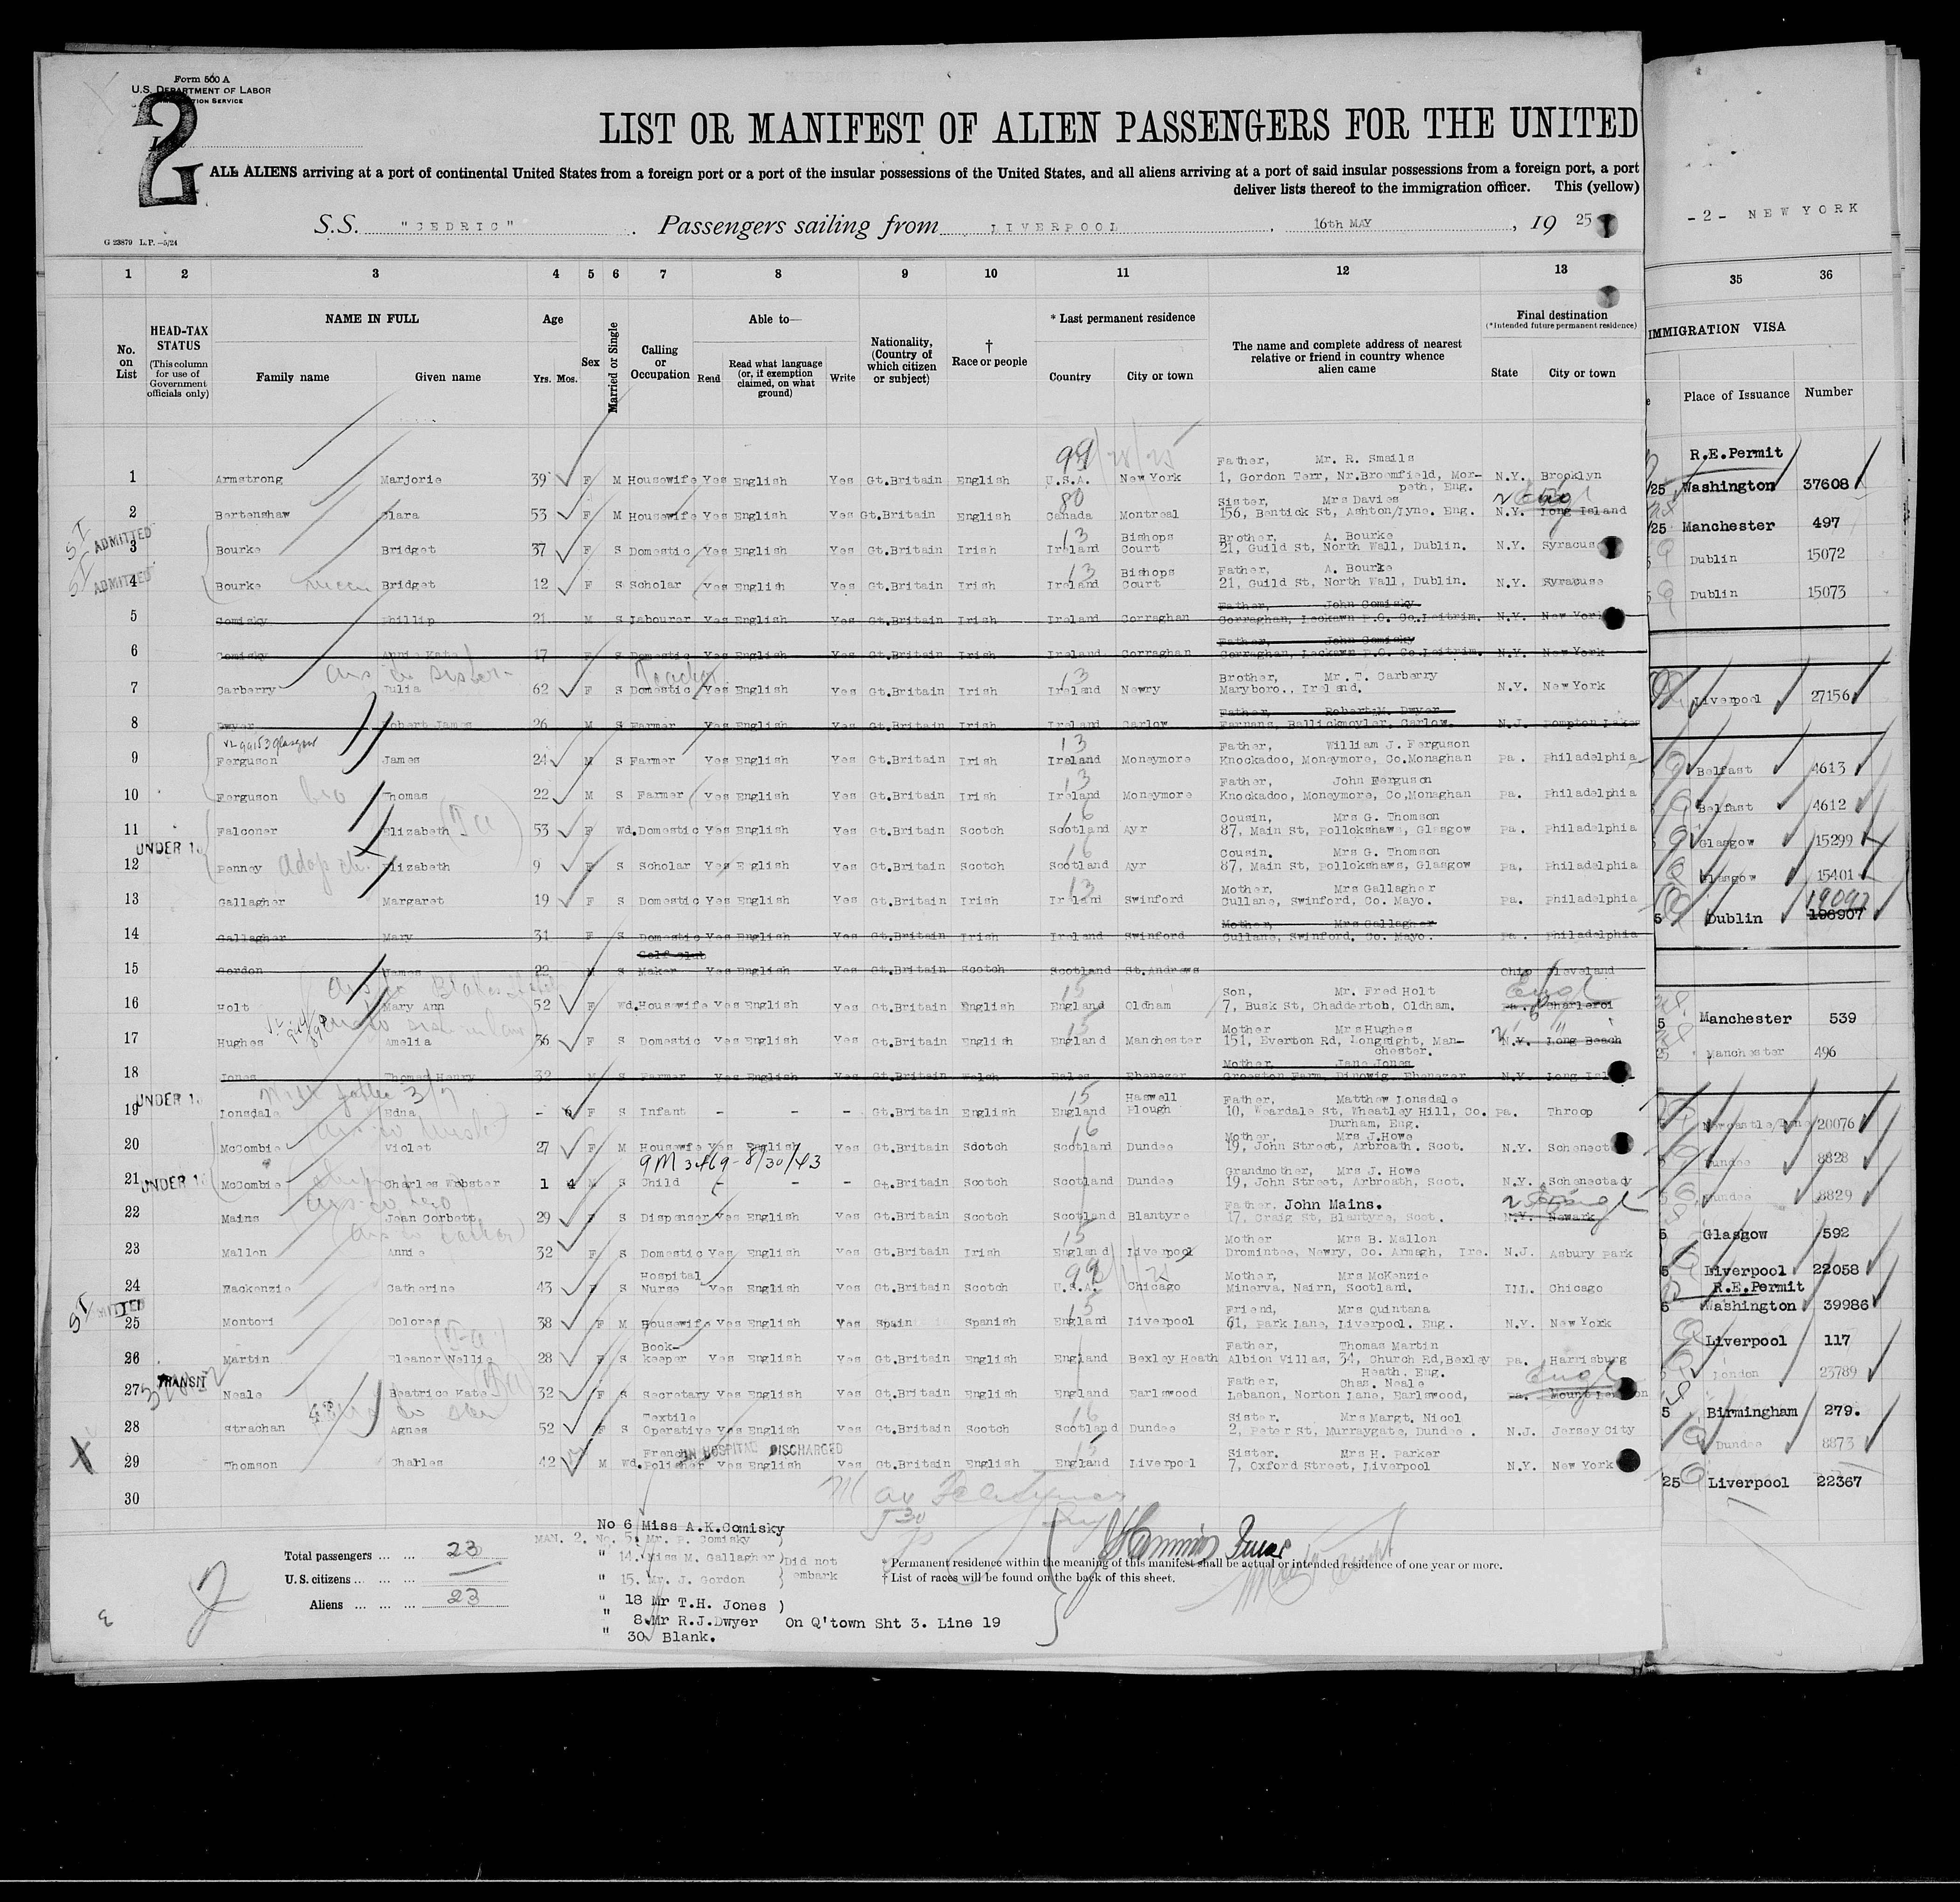 Form 500 A
U.S. DEPARTMENT OF LABOR
2
LIST OR MANIFEST OF ALIEN PASSENGERS FOR THE UNITED
ALL ALIENS arriving at a port of continental United States from a foreign port or a port of the insular possessions of the United States, and all aliens arriving at a port of said insular possessions from a foreign port, a port
deliver lists thereof to the immigration officer. This (yellow)
S.S. "CEDRIC" . Passengers sailing from LIVERPOOL , 16th MAY , 19 25
G 23879 L.P.—5/24
- 2 - NEW YORK
1 2 3 4 5 6 7 8 9 10 11 12 13 35 36
No. on List
HEAD-TAX STATUS (This column for use of Government officials only)
NAME IN FULL Family name Given name
Age Yrs. Mos.
Sex
Married or Single
Calling or Occupation
Able to— Read Read what language (or, if exemption claimed, on what ground) Write
Nationality, (Country of which citizen or subject)
† Race or people
* Last permanent residence Country City or town
The name and complete address of nearest relative or friend in country whence alien came
Final destination (*Intended future permanent residence) State City or town
IMMIGRATION VISA Place of Issuance Number
99 Father, Mr. R. Smails R.E.Permit
1 Armstrong Marjorie 39 F M Housewife Yes English Yes Gt.Britain English U.S.A. New York 1, Gordon Terr, Nr.Broomfield, Mor- N.Y. Brooklyn /25 Washington 37608
peth, Eng.
80 Sister, Mrs Davies
2 Bertenshaw Clara 53 F M Housewife Yes English Yes Gt.Britain English Canada Montreal 156, Bentick St, Ashton/Lyne. Eng. N.Y. Long Island 25 Manchester 497
SI ADMITTED
13 Bishops Brother, A. Bourke
3 Bourke Bridget 37 F S Domestic Yes English Yes Gt.Britain Irish Ireland Court 21, Guild St, North Wall, Dublin. N.Y. Syracuse Dublin 15072
SI ADMITTED
13 Bishops Father, A. Bourke
4 Bourke niece Bridget 12 F S Scholar Yes English Yes Gt.Britain Irish Ireland Court 21, Guild St, North Wall, Dublin. N.Y. Syracuse Dublin 15073
Father, John Comisky
5 Comisky Phillip 21 M S Labourer Yes English Yes Gt.Britain Irish Ireland Corraghan Corraghan, Leckawn P.O. Co.Leitrim. N.Y. New York
Father, John Comisky
6 Comisky Annie Kate 17 F S Domestic Yes English Yes Gt.Britain Irish Ireland Corraghan Corraghan, Leckawn P.O. Co.Leitrim. N.Y. New York
Teacher 13 Brother, Mr. T. Carberry
7 Carberry Julia 62 F S Domestic Yes English Yes Gt.Britain Irish Ireland Newry Maryboro., Ireland. N.Y. New York Liverpool 27156
Father, Robert M. Dwyer
8 Dwyer Robert James 26 M S Farmer Yes English Yes Gt.Britain Irish Ireland Carlow Farnans, Ballickmoyler, Carlow. N.J. Pompton Lakes
13 Father, William J. Ferguson
9 Ferguson James 24 M S Farmer Yes English Yes Gt.Britain Irish Ireland Moneymore Knockadoo, Moneymore, Co.Monaghan Pa. Philadelphia Belfast 4613
13 Father, John Ferguson
10 Ferguson bro Thomas 22 M S Farmer Yes English Yes Gt.Britain Irish Ireland Moneymore Knockadoo, Moneymore, Co,Monaghan Pa. Philadelphia Belfast 4612
16 Cousin, Mrs G. Thomson
11 Falconer Elizabeth 53 F Wd. Domestic Yes English Yes Gt.Britain Scotch Scotland Ayr 87, Main St, Pollokshaws, Glasgow Pa. Philadelphia Glasgow 15299
UNDER 16
16 Cousin. Mrs G. Thomson
12 Penney Adop ch. Elizabeth 9 F S Scholar Yes English Yes Gt.Britain Scotch Scotland Ayr 87, Main St, Pollokshaws, Glasgow Pa. Philadelphia Glasgow 15401
13 Mother, Mrs Gallagher 19097
13 Gallagher Margaret 19 F S Domestic Yes English Yes Gt.Britain Irish Ireland Swinford Cullane, Swinford, Co. Mayo. Pa. Philadelphia 5 Dublin 196907
Mother, Mrs Gallagher
14 Gallagher Mary 31 F S Domestic Yes English Yes Gt.Britain Irish Ireland Swinford Cullane, Swinford, Co. Mayo. Pa. Philadelphia
Golf club
15 Gordon James 22 M S Maker Yes English Yes Gt.Britain Scotch Scotland St.Andrews Ohio Cleveland
15 Son, Mr. Fred Holt Engl
16 Holt Mary Ann 52 F Wd. Housewife Yes English Yes Gt.Britain English England Oldham 7, Busk St, Chaddertob, Oldham. Pa. Charleroi 5 Manchester 539
15 Mother Mrs Hughes
17 Hughes Amelia 36 F S Domestic Yes English Yes Gt.Britain English England Manchester 151, Everton Rd, Longsight, Man- N.Y. Long Beach 25 Manchester 496
chester.
Mother, Jane Jones
18 Jones Thomas Henry 32 M S Farmer Yes English Yes Gt.Britain Welsh Eales Ebenezer Groeston Farm, Dinowig, Ebenezer N.Y. Long Isl
UNDER 16
15 Haswell Father, Matthew Lonsdale
19 Lonsdale Edna - 6 F S Infant - - - Gt.Britain English England Plough 10, Weardale St, Wheatley Hill, Co. Pa. Throop Newcastle/Tyne 20076
Durham, Eng.
16 Mother, Mrs J.Howe
20 McCombie Violet 27 F M Housewife Yes English Yes Gt.Britain Sdotch Scotland Dundee 19, John Street, Arbroath, Scot. N.Y. Schenect Dundee 8828
9M 3469 - 8/30/43
Grandmother, Mrs J. Howe
21 UNDER 16 McCombie Charles Webster 1 4 M S Child - - - Gt.Britain Scotch Scotland Dundee 19, John Street, Arbroath, Scot. N.Y. Schenectady Dundee 8829
Father, John Mains.
22 Mains Jean Corbett 29 F S Dispenser Yes English Yes Gt.Britain Scotch Scotland Blantyre 17, Craig St, Blantyre, Scot. N.Y. Newark 5 Glasgow 592
15 Mother Mrs B. Mallon
23 Mallon Annie 32 F S Domestic Yes English Yes Gt.Britain Irish England Liverpool Dromintee, Newry, Co. Armagh, Ire. N.J. Asbury Park 5 Liverpool 22058
Hospital 99 Mother, Mrs McKenzie R.E.Permit
24 Mackenzie Catherine 43 F S Nurse Yes English Yes Gt.Britain Scotch U.S.A. Chicago Minerva, Nairn, Scotland. ILL. Chicago 5 Washington 39986
SI
15 Friend, Mrs Quintana
25 Montori Dolores 38 F M Housewife Yes English Yes Spain Spanish England Liverpool 61, Park Lane, Liverpool. Eng. N.Y. New York Liverpool 117
Book- Father, Thomas Martin
26 Martin Eleanor Nellie 28 F S keeper Yes English Yes Gt.Britain English England Bexley Heath Albion Villas, 34, Church Rd,Bexley Pa. Harrisburg London 23789
Heath, Eng.
TRANSIT
Father, Chas. Neale Engl
27 Neale Beatrice Kate 32 F S Secretary Yes English Yes Gt.Britain English England Earlswood Lebanon, Norton Lane, Earlswood, Pa. Mount Le on 5 Birmingham 279.
Textile 16 Sister. Mrs Margt. Nicol
28 Strachan Agnes 52 F S Operative Yes English Yes Gt.Britain Scotch Scotland Dundee 2, Peter St, Murraygate, Dundee. N.J. Jersey City Dundee 8873
French IN HOSPITAL DISCHARGED 15 Sister. Mrs H. Parker
29 X Thomson Charles 42 M Wd. Polisher Yes English Yes Gt.Britain English England Liverpool 7, Oxford Street, Liverpool N.Y. New York 25 Liverpool 22367
30
No 6 Miss A.K.Comisky
MAN. 2. No. 5. Mr. P. Comisky )
" 14. Miss M. Gallagher ) Did not
" 15. Mr. J. Gordon ) embark
" 18 Mr T.H. Jones )
" 8.Mr R.J.Dwyer On Q'town Sht 3. Line 19
" 30 Blank.
Total passengers ... ... 23
U.S. citizens ... ... ...
Aliens ... ... ... 23
* Permanent residence within the meaning of this manifest shall be actual or intended residence of one year or more.
† List of races will be found on the back of this sheet.